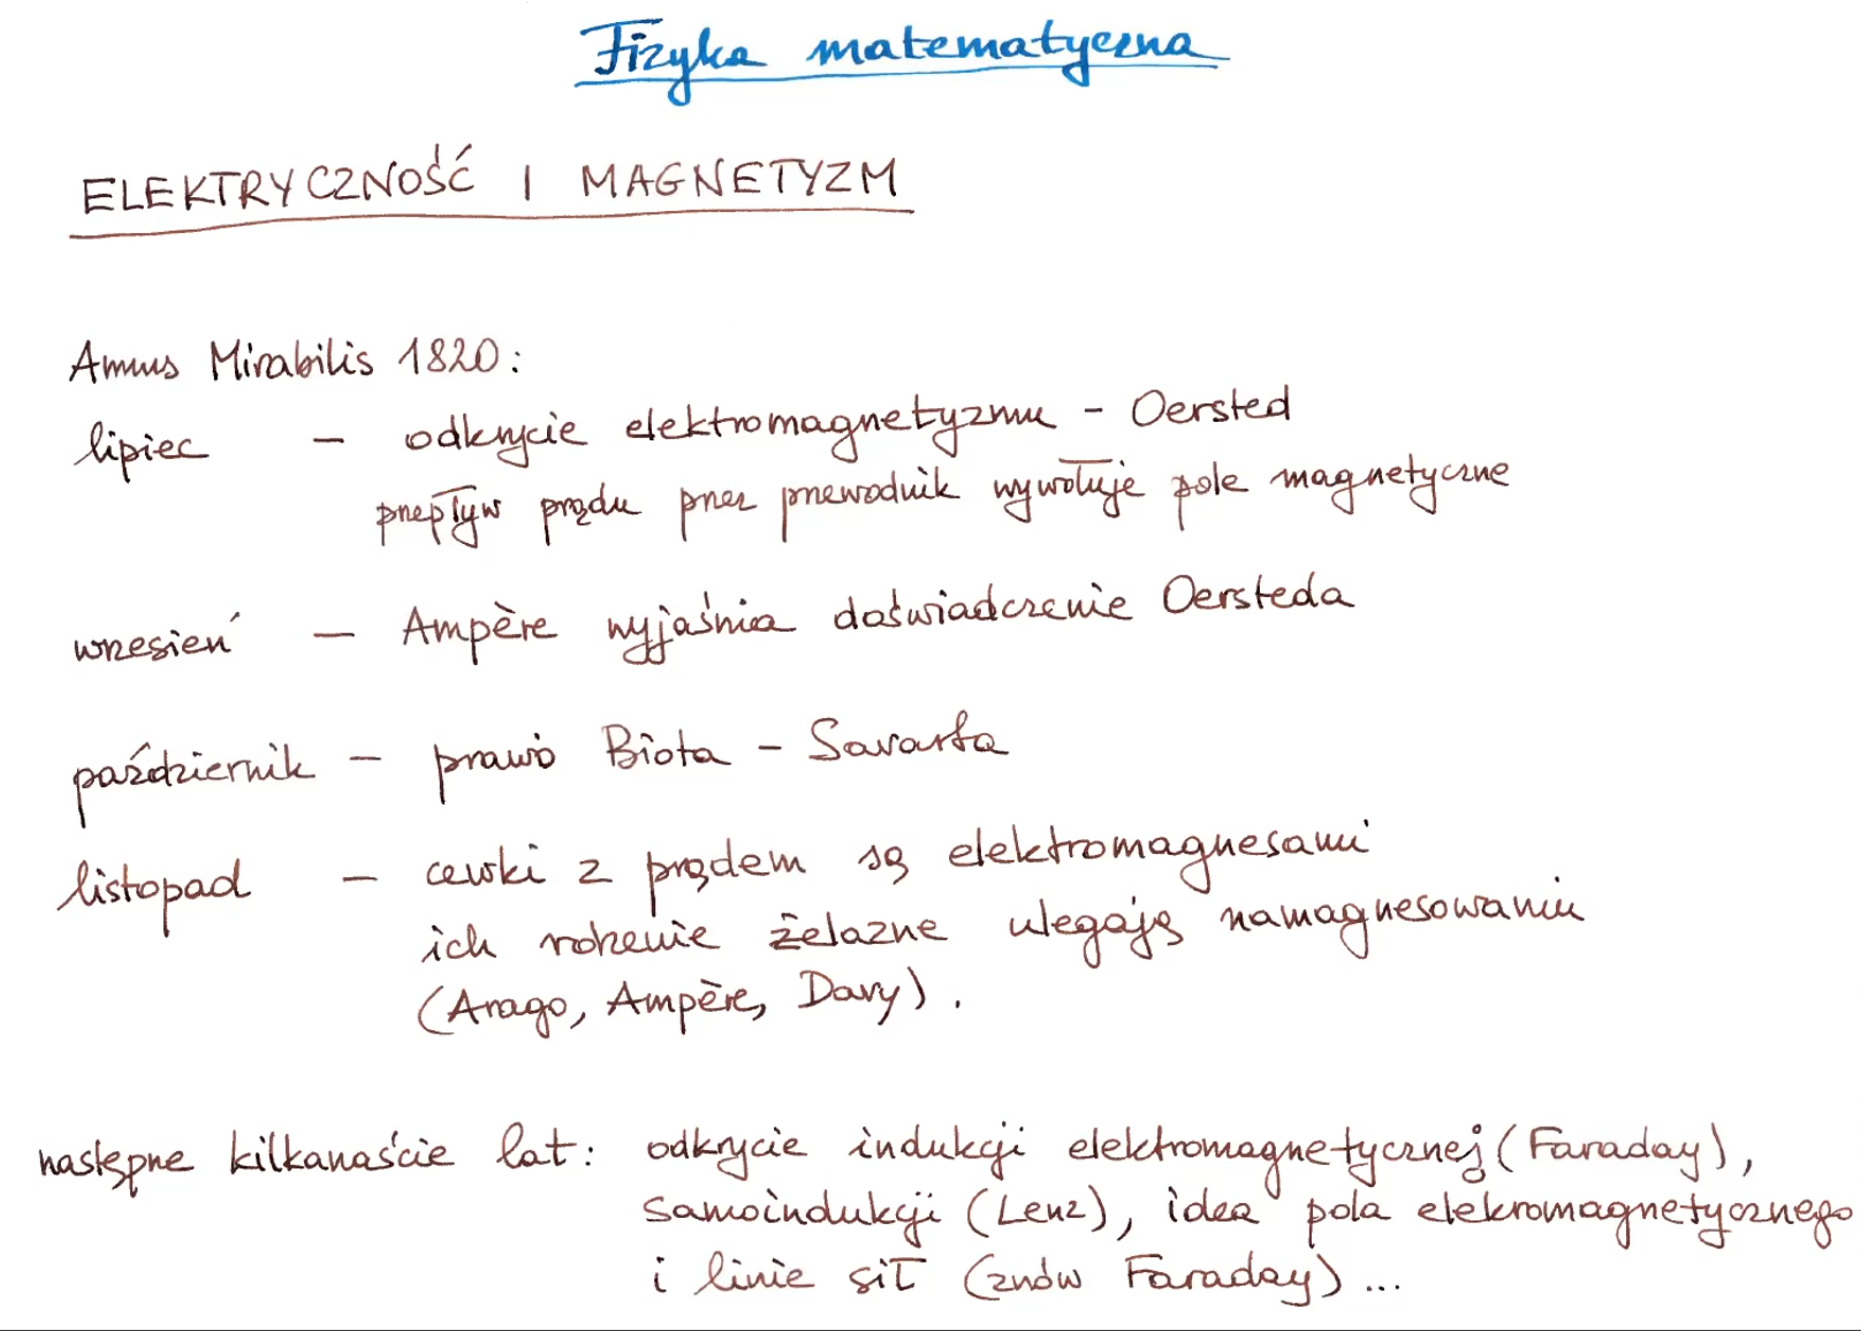 Fizyka matematyczna
ELEKTRYCZNOŚĆ I MAGNETYZM
Annus Mirabilis 1820:
lipiec – odkrycie elektromagnetyzmu – Oersted
przepływ prądu przez przewodnik wywołuje pole magnetyczne
wrzesień – Ampère wyjaśnia doświadczenie Oersteda
październik – prawo Biota – Savarta
listopad – cewki z prądem są elektromagnesami
ich rdzenie żelazne ulegają namagnesowaniu
(Arago, Ampère, Davy).
następne kilkanaście lat: odkrycie indukcji elektromagnetycznej (Faraday),
samoindukcji (Lenz), idea pola elekromagnetycznego
i linie sił (znów Faraday)...